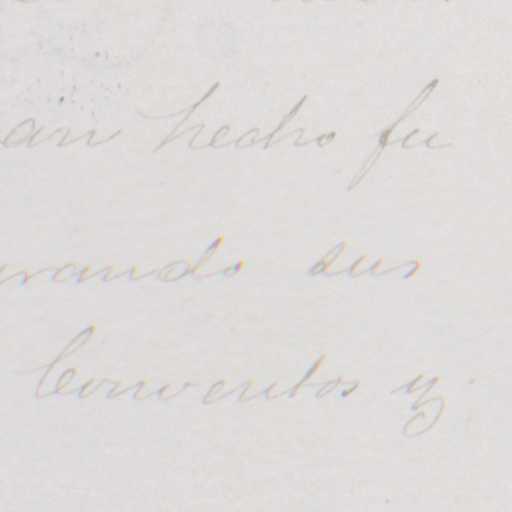 an hecho fu
rando sus
Conventos y